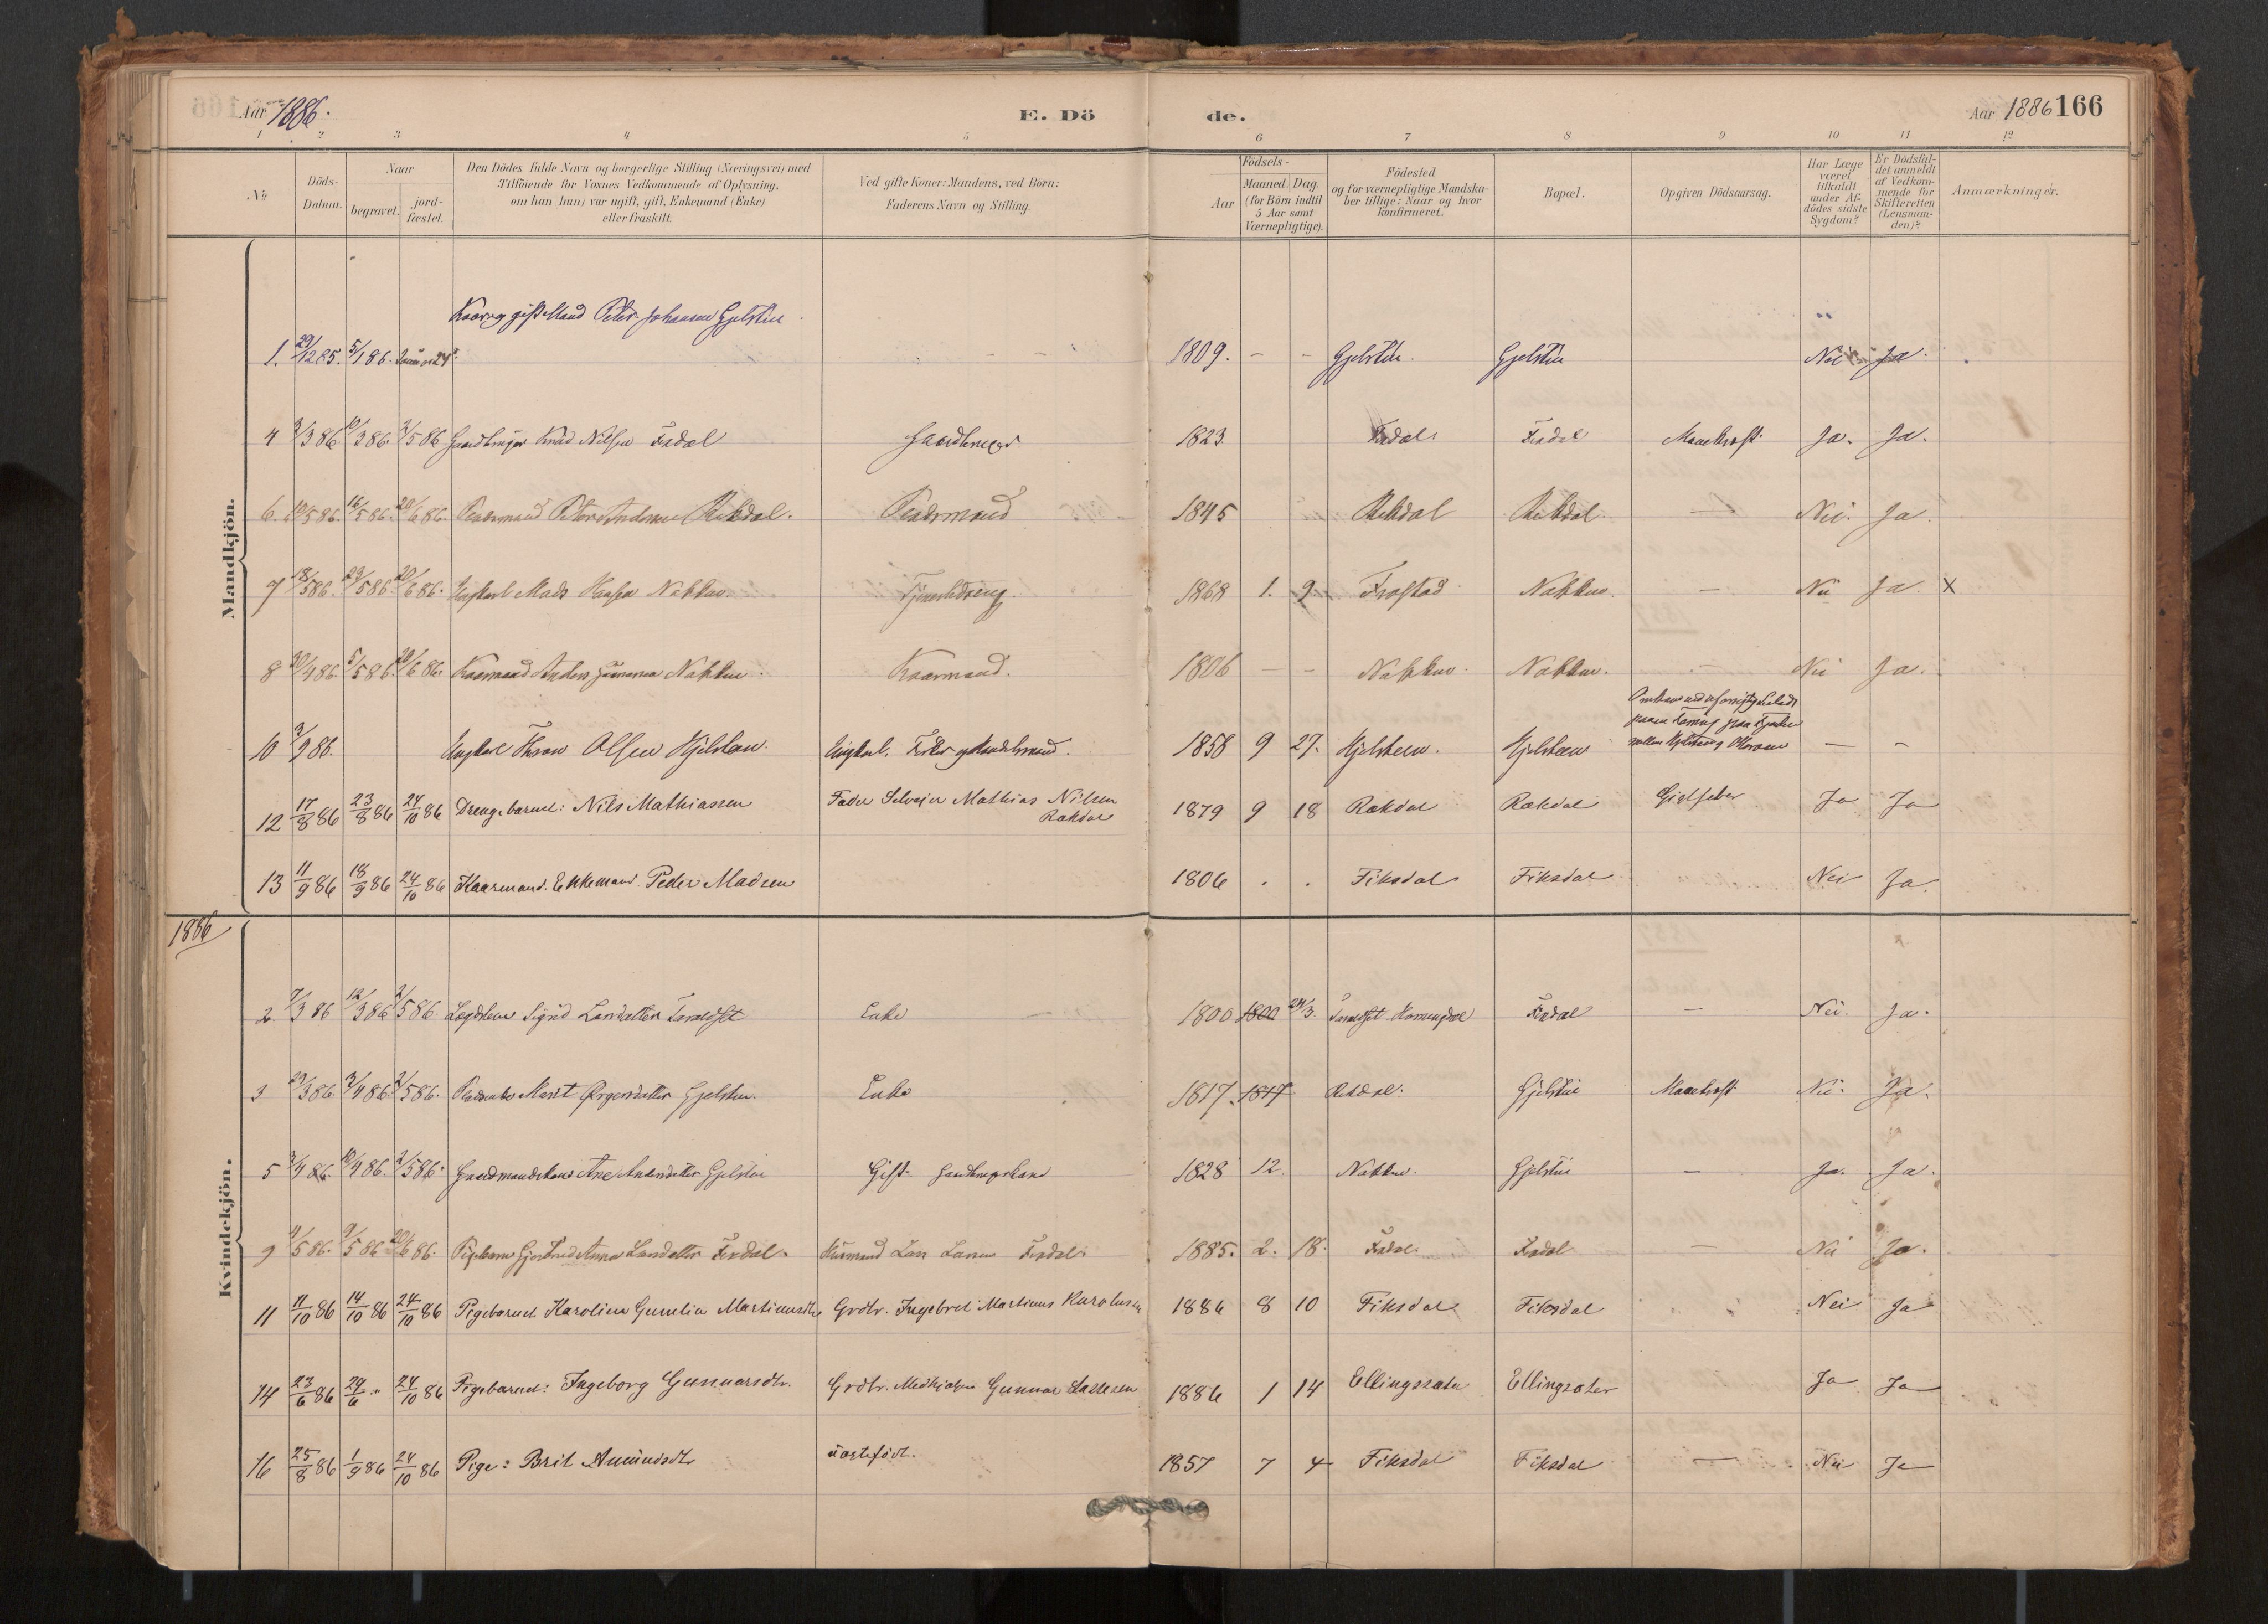 Aar 1886. E. Dö de. Aar 1886 166
1 2 3 4 5 6 7 8 9 10 11 12
No
Döds-
Datum.
Naar
begravet.
jord-
fæstet.
Den Dödes fulde Navn og borgerlige Stilling (Næringsvei) med
Tilföiende for Voxnes Vedkommende af Oplysning,
om han (hun) var ugift, gift, Enkemand (Enke)
eller fraskilt.
Ved gifte Koner: Mandens, ved Börn:
Faderens Navn og Stilling.
Födsels-
Aar
Maaned. Dag.
(for Börn indtil
5 Aar samt
Værnepligtige).
Födested
og for værnepligtige Mandska-
ber tillige: Naar og hvor
konfirmeret.
Bopæl.
Opgiven Dödsaarsag.
Har Læge
været
tilkaldt
under Af-
dödes sidste
Sygdom?
Er Dödsfal-
det anmeldt
af Vedkom-
mende for
Skifteretten
(Lensman-
den)?
Anmærkninger.
Mandkjön.
gift Mand Peter Johansen Gjelsten
1. 29/12 85. 5/1 86. 1809. - - Gjelsten. Gjelsten Nei Ja.
4 3/3 86. 10/3 86 2/5 86 Gaardbruger Knud Nilsen Fixdal Gaardbruger 1823 Fixdal Fixdal Ja. Ja.
6. 10/5 86. 16/5 86. 20/6 86. Peter Andersen Rekdal. 1845 Rekdal Rekdal. - Nei. Ja.
7 18/5 86. 29/5 86. 20/6 86. Ungkarl Mads Nakken. Tjenestedreng. 1868 1. 9 Frostad Nakken. - Nei Ja X
8 30/4 86. 5/5 86. 20/6 86. Kaarmand Anders Gunnarsen Nakken. Kaarmand. 1806 - - Nakken. Nakken. - Nei Ja.
10 3/9 86. Ungkarl Olsen Hjelsteen. Ungkarl. 1858 9 27. Hjelsteen. Hjelsteen - -
12 17/8 86 23/8 86 24/10 86 Drengebarnet: Nils Mathiassen Fader Selveier Mathias Nilsen
Rækdal 1879 9 18 Rækdal Rækdal Ja Ja
13 11/9 86 18/9 86 24/10 86 Kaarmand. Enkemand. Peder Madsen 1806 . . Fiksdal Fiksdal Nei Ja.
1886
Kvindekjön.
2. 7/3 86 12/3 86 2/5 86. Sigrid Larsdatter Enke 1800 1800 24/3. Fixdal - Nei. Ja.
3 29/3 86. 3/4 86. 2/5 86. Marit Gjelsten. Enke 1817. 1817 Rekdal. Gjelsten Nei. Ja.
5 3/4 86. 10/4 86. 2/5 86. Gaardmandskone Ane Gjelsten Gift 1828 12. Nakken. Gjelsten - Ja. Ja.
9 4/5 86. 9/5 86 20/6 86. Pigebarn Gjertrud Anna Larsdatter Fixdal. Husmand Lars Larsen Fixdal. 1885. 2. 18. Fixdal. Fixdal - Nei Ja.
11 11/10 86 14/10 86 24/10 86 Pigebarnet Karoline Gunelia Martinusdtr Grdbr. Ingebret Martinus Karolusen 1886 8 10 Fiksdal Fiksdal Nei Ja
14 23/6 86 29/6 " 24/10 86 Pigebarnet: Ingeborg Gunnarsdtr. Grdbr. Gunnar Lassesen 1886 1 14 Ellingsæter Ellingsæter Ja Ja
16 25/8 86 1/9 86 24/10 86 Pige: Brit Amundsdtr 1857 7 4 Fiksdal Fiksdal - Nei Ja